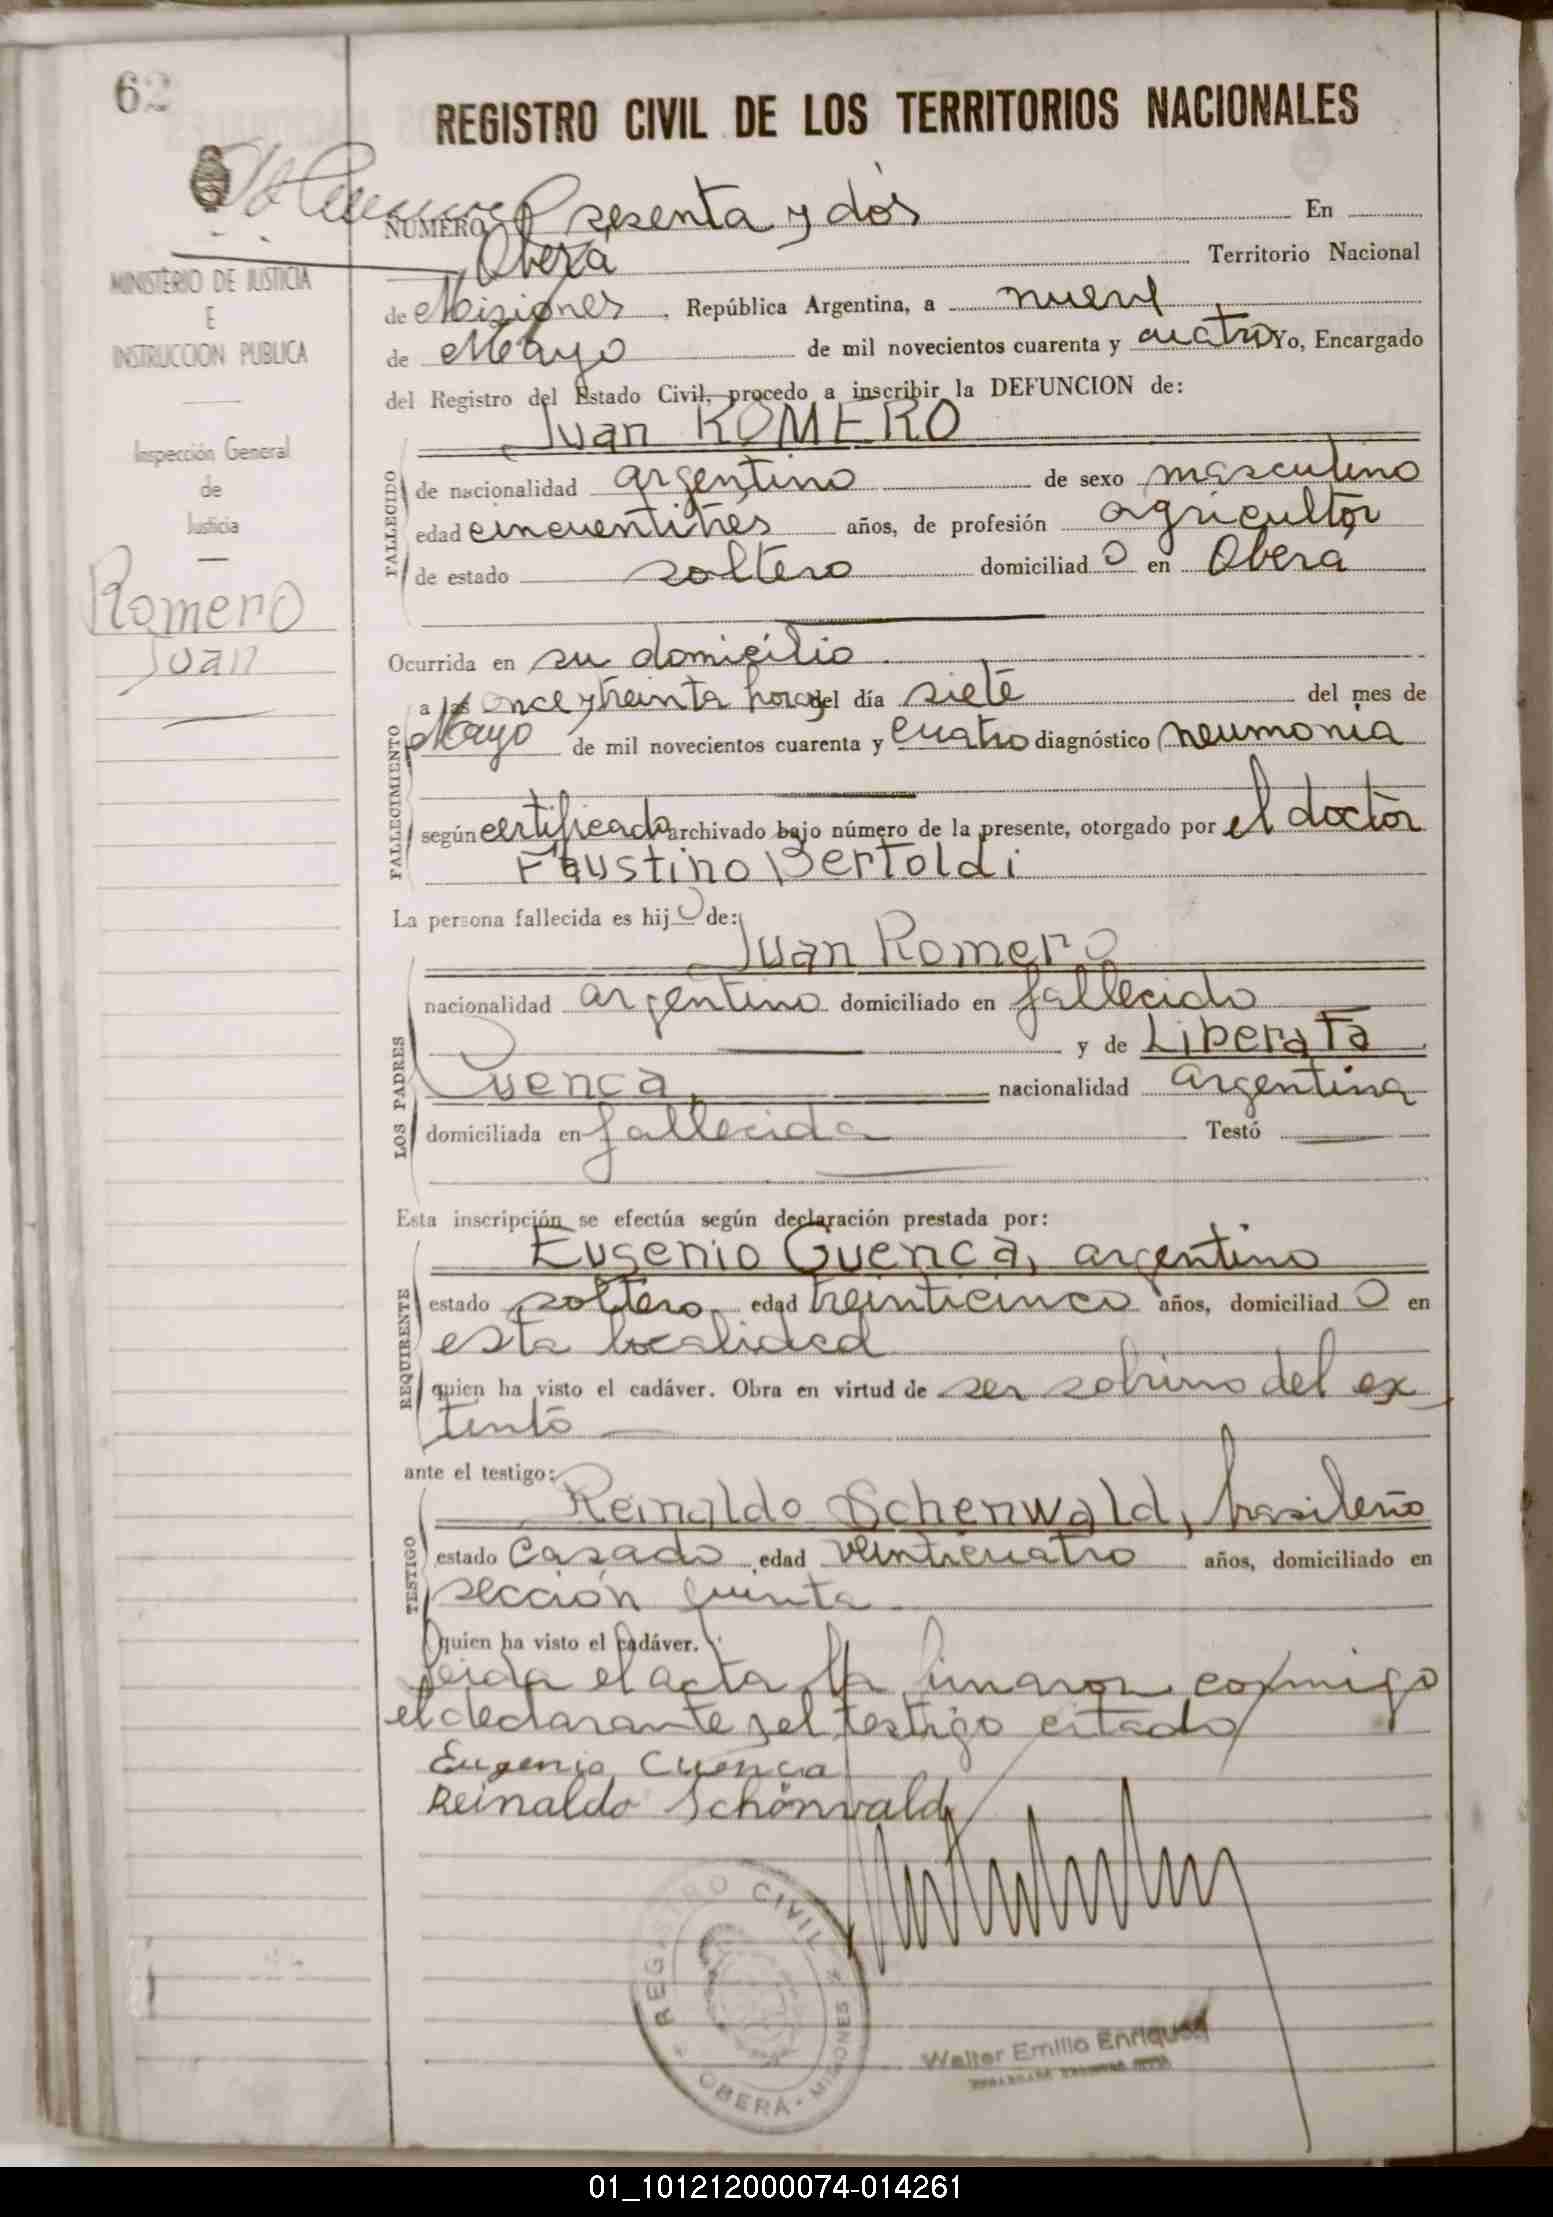 62
REGISTRO CIVIL DE LOS TERRITORIOS NACIONALES
NUMERO sesenta y dós En
Oberá Territorio Nacional
de Misiones, República Argentina, a nueve
de Mayo de mil novecientos cuarenta y cuatro Yo, Encargado
del Registro del Estado Civil, procedo a inscribir la DEFUNCION de:
Juan ROMERO
de nacionalidad argentino de sexo masculino
edad cincuentitrés años, de profesión agricultor
de estado soltero domiciliad o en Oberá
FALLECIDO
MINISTERIO DE JUSTICIA
E
INSTRUCCION PUBLICA
Inspección General
de
Justicia
Romero
Juan
Ocurrida en su domicilio
a las once y treinta horas del día siete del mes de
Mayo de mil novecientos cuarenta y cuatro diagnóstico neumonia
según certificado archivado bajo número de la presente, otorgado por el doctor
Faustino Bertoldi
FALLECIMIENTO
La persona fallecida es hij o de:
Juan Romero
nacionalidad argentino domiciliado en fallecido
y de Liberata
Cuenca, nacionalidad argentina
domiciliada en fallecida Testó
LOS PADRES
Esta inscripción se efectúa según declaración prestada por:
Eugenio Cuenca, argentino
estado soltero edad treinticinco años, domiciliad o en
esta localidad
quien ha visto el cadáver. Obra en virtud de ser sobrino del ex
tinto
REQUIRENTE
ante el testigo:
Reinaldo Schenwald, brasileño
estado casado edad veinticuatro años, domiciliado en
sección quinta
TESTIGO
quien ha visto el cadáver.
Leida el acta la firmaron conmigo
el declarante y el testigo citado
Eugenio Cuenca
Reinaldo Schönwald
REGISTRO CIVIL
OBERÁ - MISIONES
Walter Emilio Enriquez
01_101212000074-014261